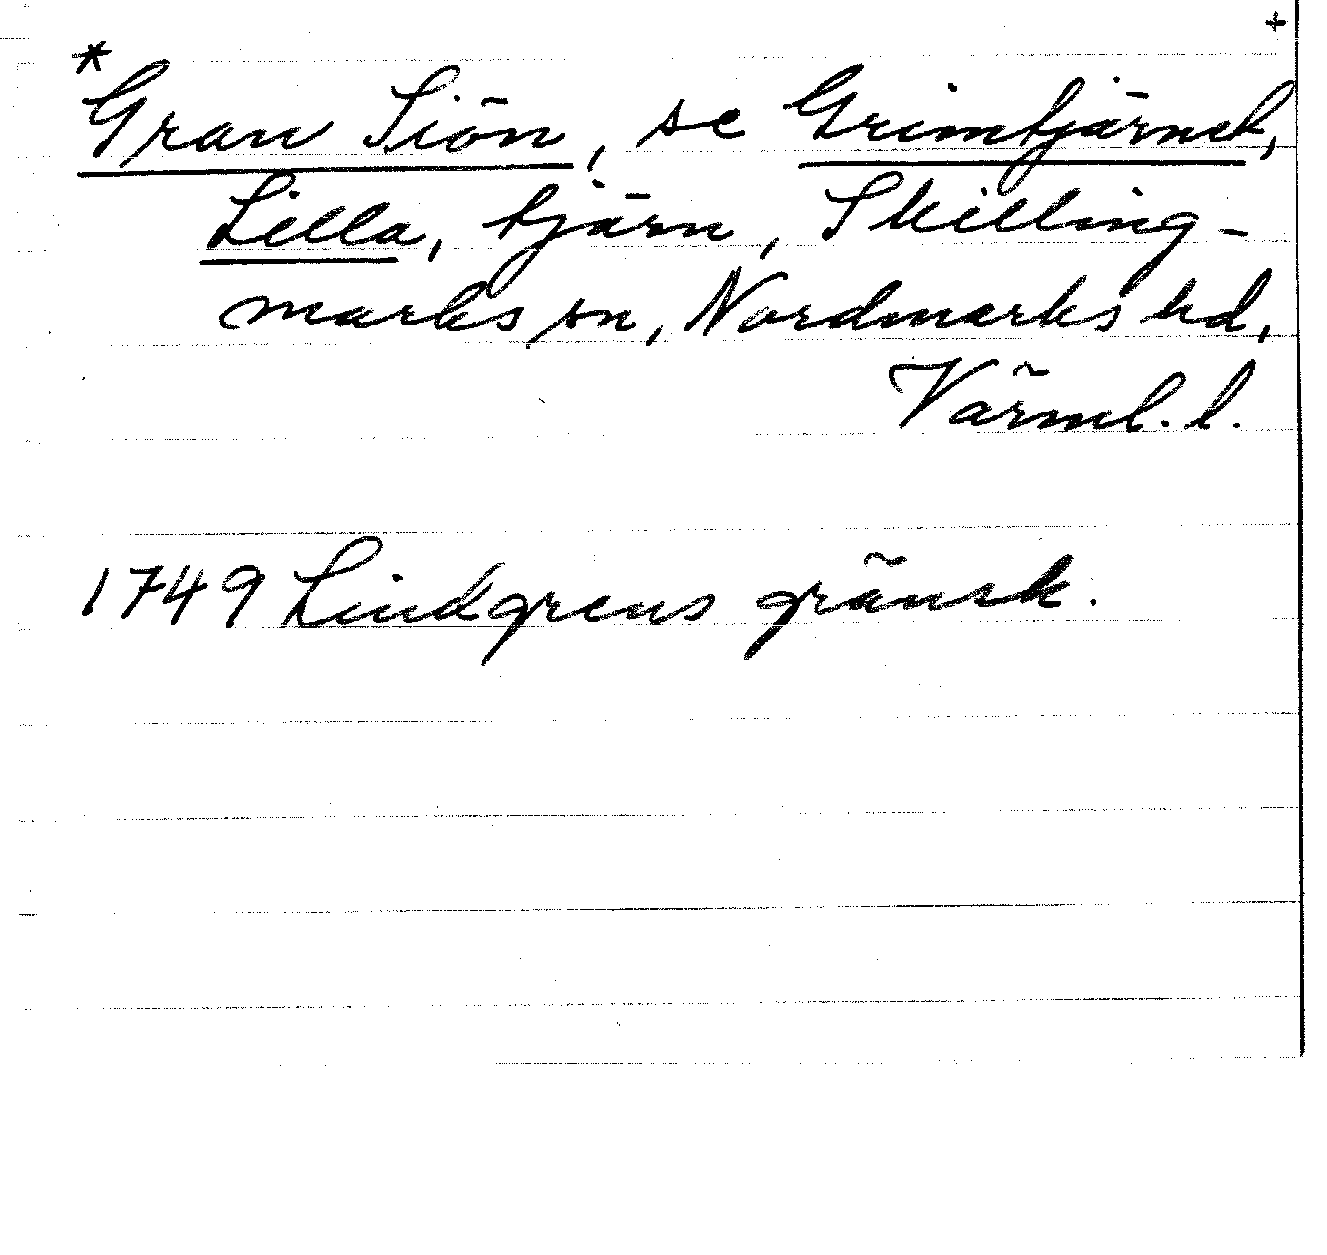 +
*
Gran Siön, se Grimtjärnet,
Lilla, tjärn, Skilling-
marks sn, Nordmarks hd,
Värml. l.
1749 Lindgrens gränsk.